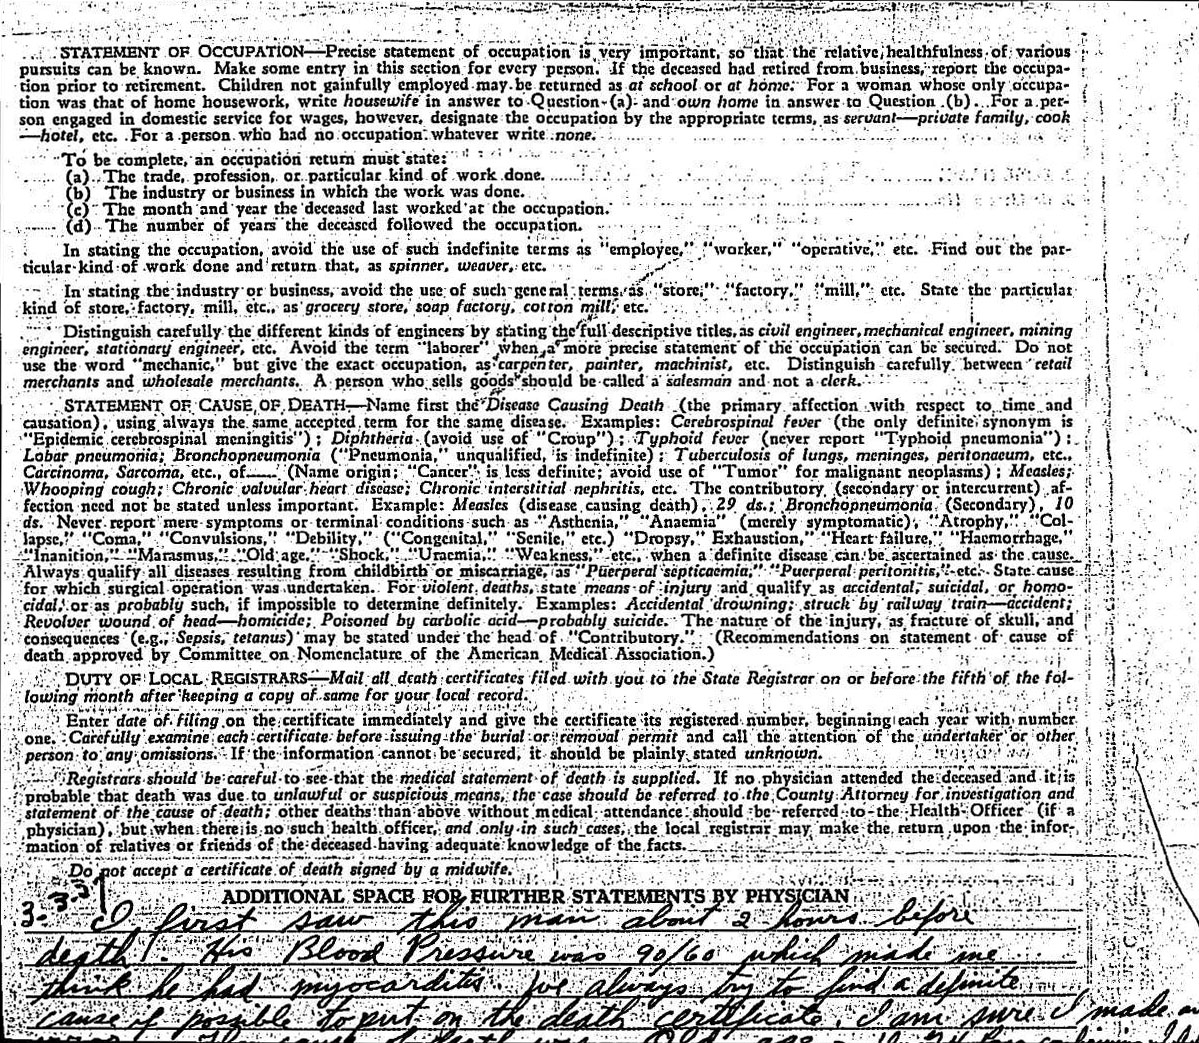 STATEMENT OF OCCUPATION—Precise statement of occupation is very important, so that the relative healthfulness of various
pursuits can be known. Make some entry in this section for every person. If the deceased had retired from business, report the occupa-
tion prior to retirement. Children not gainfully employed may be returned as at school or at home. For a woman whose only occupa-
tion was that of home housework, write housewife in answer to Question (a) and own home in answer to Question (b). For a per-
son engaged in domestic service for wages, however, designate the occupation by the appropriate terms, as servant—private family, cook
—hotel, etc. For a person who had no occupation whatever write none.
To be complete, an occupation return must state:
(a) The trade, profession, or particular kind of work done.
(b) The industry or business in which the work was done.
(c) The month and year the deceased last worked at the occupation.
(d) The number of years the deceased followed the occupation.
In stating the occupation, avoid the use of such indefinite terms as "employee," "worker," "operative," etc. Find out the par-
ticular kind of work done and return that, as spinner, weaver, etc.
In stating the industry or business, avoid the use of such general terms as "store," "factory," "mill," etc. State the particular
kind of store, factory, mill, etc., as grocery store, soap factory, cotton mill, etc.
Distinguish carefully the different kinds of engineers by stating the full descriptive titles, as civil engineer, mechanical engineer, mining
engineer, stationary engineer, etc. Avoid the term "laborer" when a more precise statement of the occupation can be secured. Do not
use the word "mechanic," but give the exact occupation, as carpenter, painter, machinist, etc. Distinguish carefully between retail
merchants and wholesale merchants. A person who sells goods should be called a salesman and not a clerk.
STATEMENT OF CAUSE OF DEATH—Name first the Disease Causing Death (the primary affection with respect to time and
causation), using always the same accepted term for the same disease. Examples: Cerebrospinal fever (the only definite synonym is
"Epidemic cerebrospinal meningitis"); Diphtheria (avoid use of "Croup"); Typhoid fever (never report "Typhoid pneumonia");
Lobar pneumonia; Bronchopneumonia ("Pneumonia," unqualified, is indefinite); Tuberculosis of lungs, meninges, peritonaeum, etc.,
Carcinoma, Sarcoma, etc., of____ (Name origin; "Cancer" is less definite; avoid use of "Tumor" for malignant neoplasms); Measles;
Whooping cough; Chronic valvular heart disease; Chronic interstitial nephritis, etc. The contributory (secondary or intercurrent) af-
fection need not be stated unless important. Example: Measles (disease causing death), 29 ds.; Bronchopneumonia (Secondary), 10
ds. Never report mere symptoms or terminal conditions such as "Asthenia," "Anaemia" (merely symptomatic), "Atrophy," "Col-
lapse," "Coma," "Convulsions," "Debility," ("Congenital," "Senile," etc.) "Dropsy," Exhaustion," "Heart failure," "Haemorrhage,"
"Inanition," "Marasmus," "Old age," "Shock," "Uraemia," "Weakness," etc., when a definite disease can be ascertained as the cause.
Always qualify all diseases resulting from childbirth or miscarriage, as "Puerperal septicaemia," "Puerperal peritonitis," etc. State cause
for which surgical operation was undertaken. For violent deaths, state means of injury and qualify as accidental, suicidal, or homo-
cidal, or as probably such, if impossible to determine definitely. Examples: Accidental drowning; struck by railway train—accident;
Revolver wound of head—homicide; Poisoned by carbolic acid—probably suicide. The nature of the injury, as fracture of skull, and
consequences (e.g., Sepsis, tetanus) may be stated under the head of "Contributory." (Recommendations on statement of cause of
death approved by Committee on Nomenclature of the American Medical Association.)
DUTY OF LOCAL REGISTRARS—Mail all death certificates filed with you to the State Registrar on or before the fifth of the fol-
lowing month after keeping a copy of same for your local record.
Enter date of filing on the certificate immediately and give the certificate its registered number, beginning each year with number
one. Carefully examine each certificate before issuing the burial or removal permit and call the attention of the undertaker or other
person to any omissions. If the information cannot be secured, it should be plainly stated unknown.
Registrars should be careful to see that the medical statement of death is supplied. If no physician attended the deceased and it is
probable that death was due to unlawful or suspicious means, the case should be referred to the County Attorney for investigation and
statement of the cause of death; other deaths than above without medical attendance should be referred to the Health Officer (if a
physician), but when there is no such health officer, and only in such cases, the local registrar may make the return upon the infor-
mation of relatives or friends of the deceased having adequate knowledge of the facts.
Do not accept a certificate of death signed by a midwife.
ADDITIONAL SPACE FOR FURTHER STATEMENTS BY PHYSICIAN
3-3-31
I first saw this man about 2 hours before
death. His Blood Pressure was 90/60 which made me
think he had myocarditis. I've always try to find a definite
cause if possible to put on the death certificate. I am sure I made an